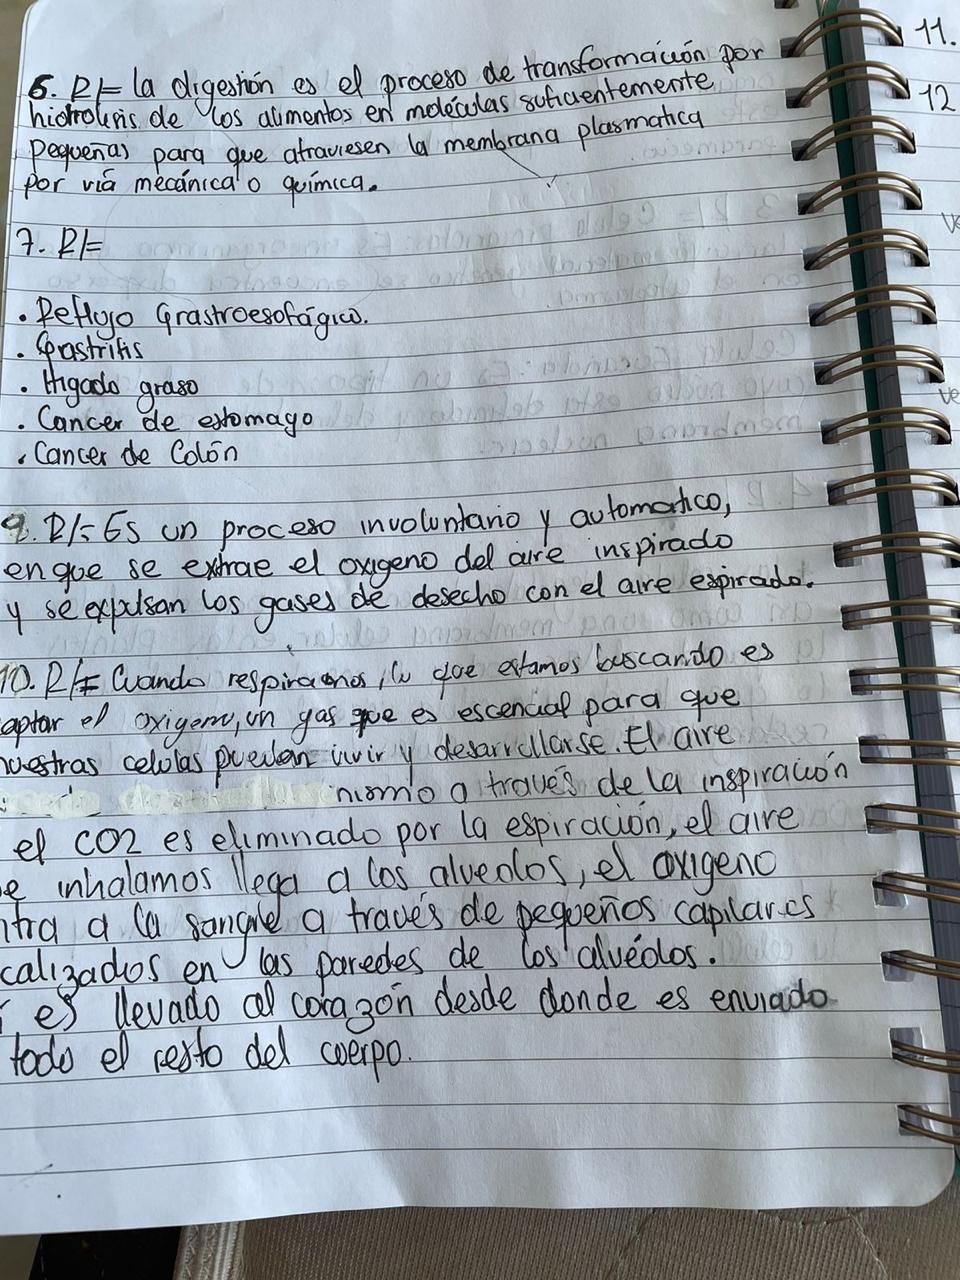 6. R/= la digestión es el proceso de transformación por
hidrolisis de los alimentos en moléculas suficientemente
pequeñas para que atraviesen la membrana plasmatica
por viá mecánica o química.
7. R/=
• Reflujo Grastroesofágico.
• Gastritis
• Higado graso
• Cancer de estomago
• Cancer de Colón
9. R/= Es un proceso involuntario y automatico,
en que se extrae el oxigeno del aire inspirado
y se expulsan los gases de desecho con el aire espirado.
10. R/= Cuando respiramos, lo que estamos buscando es
aptar el oxigeno, un gas que es escencial para que
nuestras celulas puedan vivir y desarrollarse. El aire
nismo a través de la inspiración
el CO2 es eliminado por la espiración, el aire
e inhalamos llega a los alveolos, el oxígeno
ntra a la sangre a través de pequeños capilares
calizados en las paredes de los alvéolos.
í es llevado al corazón desde donde es enviado
todo el resto del cuerpo.
11.
12
ve
ve